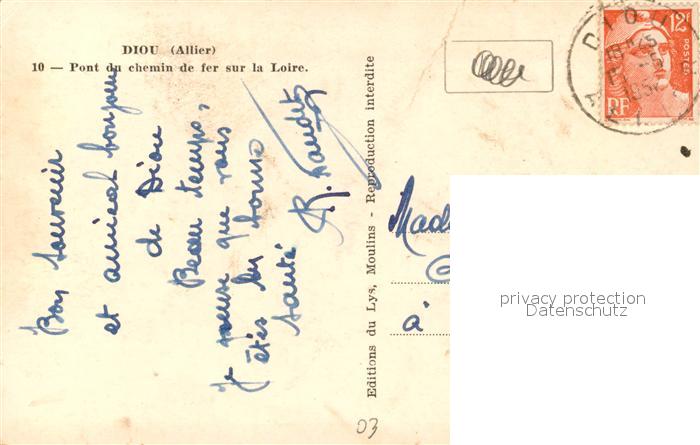 DIOU (Allier)
10 — Pont du chemin de fer sur la Loire.
Bon souvenir
et amical bonjour
de Diou
Beau temps,
Je pense que vous
êtes en bonne
santé
Editions du Lys, Moulins - Reproduction interdite
12F
POSTES
RF
DIOU
Mad
à
privacy protection
Datenschutz
03